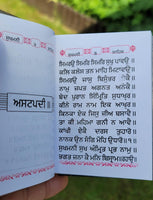 ਸੁਖਮਨੀ ੩ ਸਾਹਿਬ
ਅਸਟਪਦੀ ॥
ਸਿਮਰਉ ਸਿਮਰਿ ਸਿਮਰਿ ਸੁਖੁ ਪਾਵਉ ॥
ਕਲਿ ਕਲੇਸ ਤਨ ਮਾਹਿ ਮਿਟਾਵਉ ॥
ਸਿਮਰਉ ਜਾਸੁ ਬਿਸੁੰਭਰ ਏਕੈ ॥
ਨਾਮੁ ਜਪਤ ਅਗਨਤ ਅਨੇਕੈ ॥
ਬੇਦ ਪੁਰਾਨ ਸਿੰਮ੍ਰਿਤਿ ਸੁਧਾਖੵਰ ॥
ਕੀਨੇ ਰਾਮ ਨਾਮ ਇਕ ਆਖੵਰ ॥
ਕਿਨਕਾ ਏਕ ਜਿਸੁ ਜੀਅ ਬਸਾਵੈ ॥
ਤਾ ਕੀ ਮਹਿਮਾ ਗਨੀ ਨ ਆਵੈ ॥
ਕਾਂਖੀ ਏਕੈ ਦਰਸ ਤੁਹਾਰੋ ॥
ਨਾਨਕ ਉਨ ਸੰਗਿ ਮੋਹਿ ਉਧਾਰੋ ॥੧॥
ਸੁਖਮਨੀ ਸੁਖ ਅੰਮ੍ਰਿਤ ਪ੍ਰਭ ਨਾਮੁ ॥
ਭਗਤ ਜਨਾ ਕੈ ਮਨਿ ਬਿਸ੍ਰਾਮ ॥ਰਹਾਉ॥